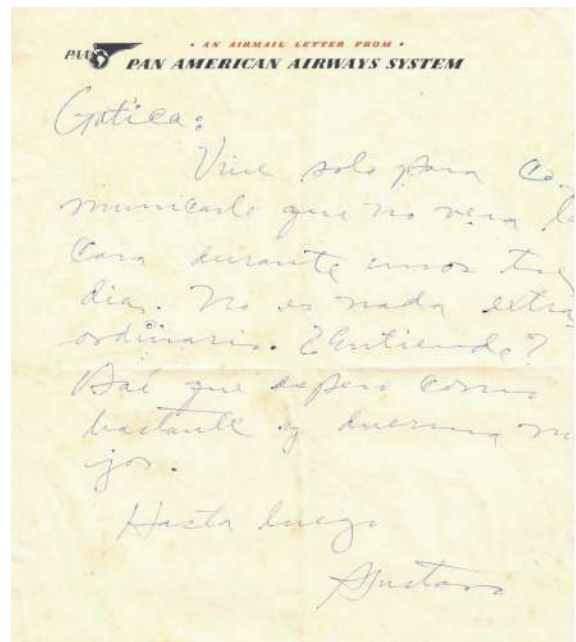 • AN AIRMAIL LETTER FROM •
PAA
PAN AMERICAN AIRWAYS SYSTEM
Gotica:
Vine solo para co-
municarle que no vera la
cara durante unos tres
dias. No es nada extra-
ordinario. ¿Entiende?
Asi que espero coma
bastante y duerma me
jor.
Hasta luego
Gustavo